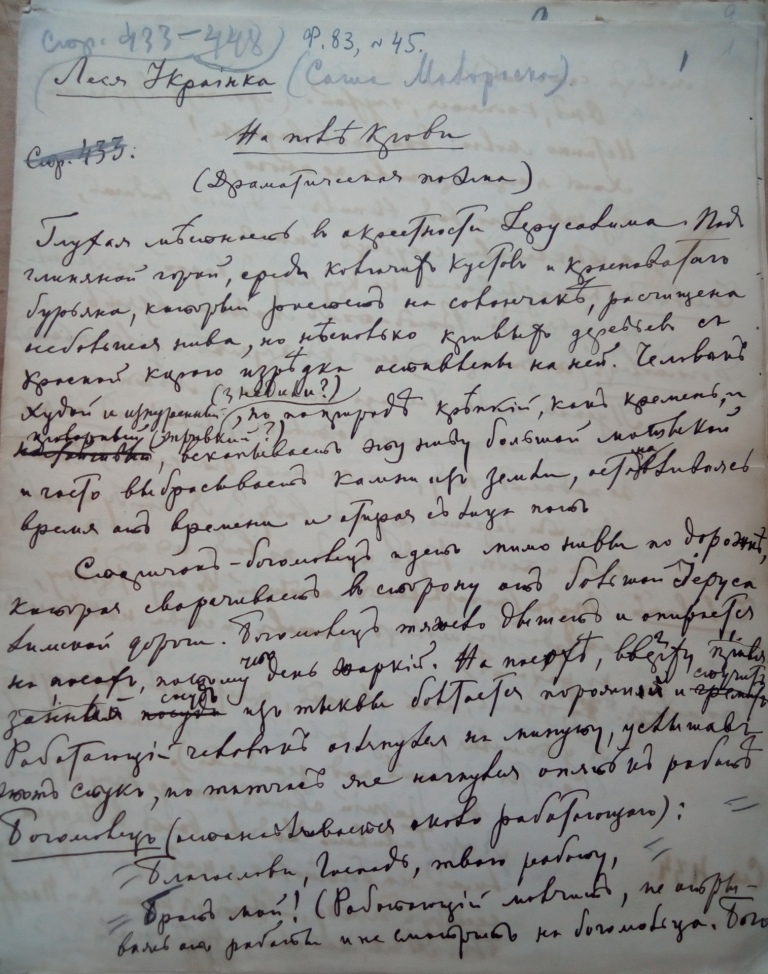 Стор. 433–448) Ф. 83, №45.
Леся Украінка (Саша
Стор. 433.
На полѣ крови
(Драматическая поэма)
Глухая мѣстность в окрестности Іерусалима. Под
глиняной горой, среди колючихъ кустовъ и красноватаго
бурьяна, который растетъ на солончакѣ, расчищена
небольшая нива, но нѣсколько кривыхъ деревьевъ съ
красной корою изрѣдка оставлены на ней. Человѣкъ
(з невили?)
худой и изнуренный, но по природѣ крѣпкій, какъ кремень, и
(терпкий?)
, вскапываетъ эту ниву большой мотыкой
и часто выбрасываетъ камни изъ земли, останавливаясь
время отъ времени и отирая съ лица потъ
Старичокъ-богомолецъ идетъ мимо нивы по дорожкѣ,
которая сворачиваетъ въ сторону отъ большой Іеруса
лимской дороги. Богомолецъ тяжело дышетъ и опирается
на посохъ, потому что день жаркій. На посохѣ, вверху
сосудъ изъ тыквы болтается порожній и стучитъ
Работающій человѣкъ оглянулся на минуту, услышавъ
тотъ стукъ, но тотчасъ же нагнулся опять къ работѣ
Богомолецъ (останавливается около работающаго):
Благослови, Господь, твою работу,
Братъ мой! (Работающій молчитъ, не отры-
ваясь отъ работы и не смотритъ на богомольца. Бого